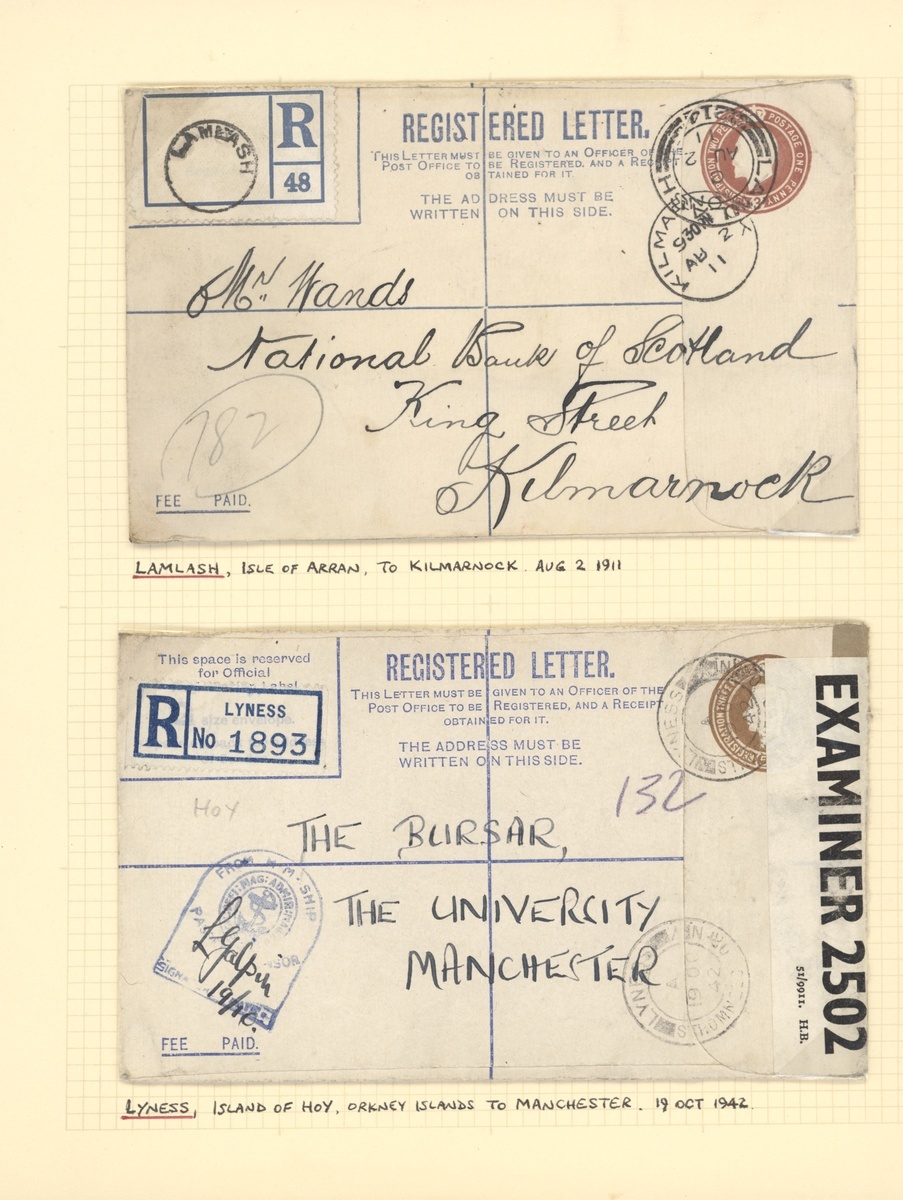 LAMLASH
R
48
REGISTERED LETTER.
THIS LETTER MUST BE GIVEN TO AN OFFICER OF THE
POST OFFICE TO BE REGISTERED, AND A RECEIPT
OBTAINED FOR IT.
THE ADDRESS MUST BE
WRITTEN ON THIS SIDE.
KILMARNOCK
9 30AM
AU 2
11
Mr. Wands
National Bank of Scotland
King Street
Kilmarnock
782
FEE PAID.
LAMLASH, ISLE OF ARRAN, TO KILMARNOCK. AUG 2 1911
This space is reserved
for Official
Label
size envelope.
R
LYNESS
No 1893
REGISTERED LETTER.
THIS LETTER MUST BE GIVEN TO AN OFFICER OF THE
POST OFFICE TO BE REGISTERED, AND A RECEIPT
OBTAINED FOR IT.
THE ADDRESS MUST BE
WRITTEN ON THIS SIDE.
LYNESS
132
HOY
THE BURSAR,
THE UNIVERCITY
MANCHESTER
FROM H.M. SHIP
19/10.
LYNESS
19 OC
42
STROMNESS
FEE PAID.
EXAMINER 2502
51/9911. H.B.
LYNESS, ISLAND OF HOY, ORKNEY ISLANDS TO MANCHESTER. 19 OCT 1942.